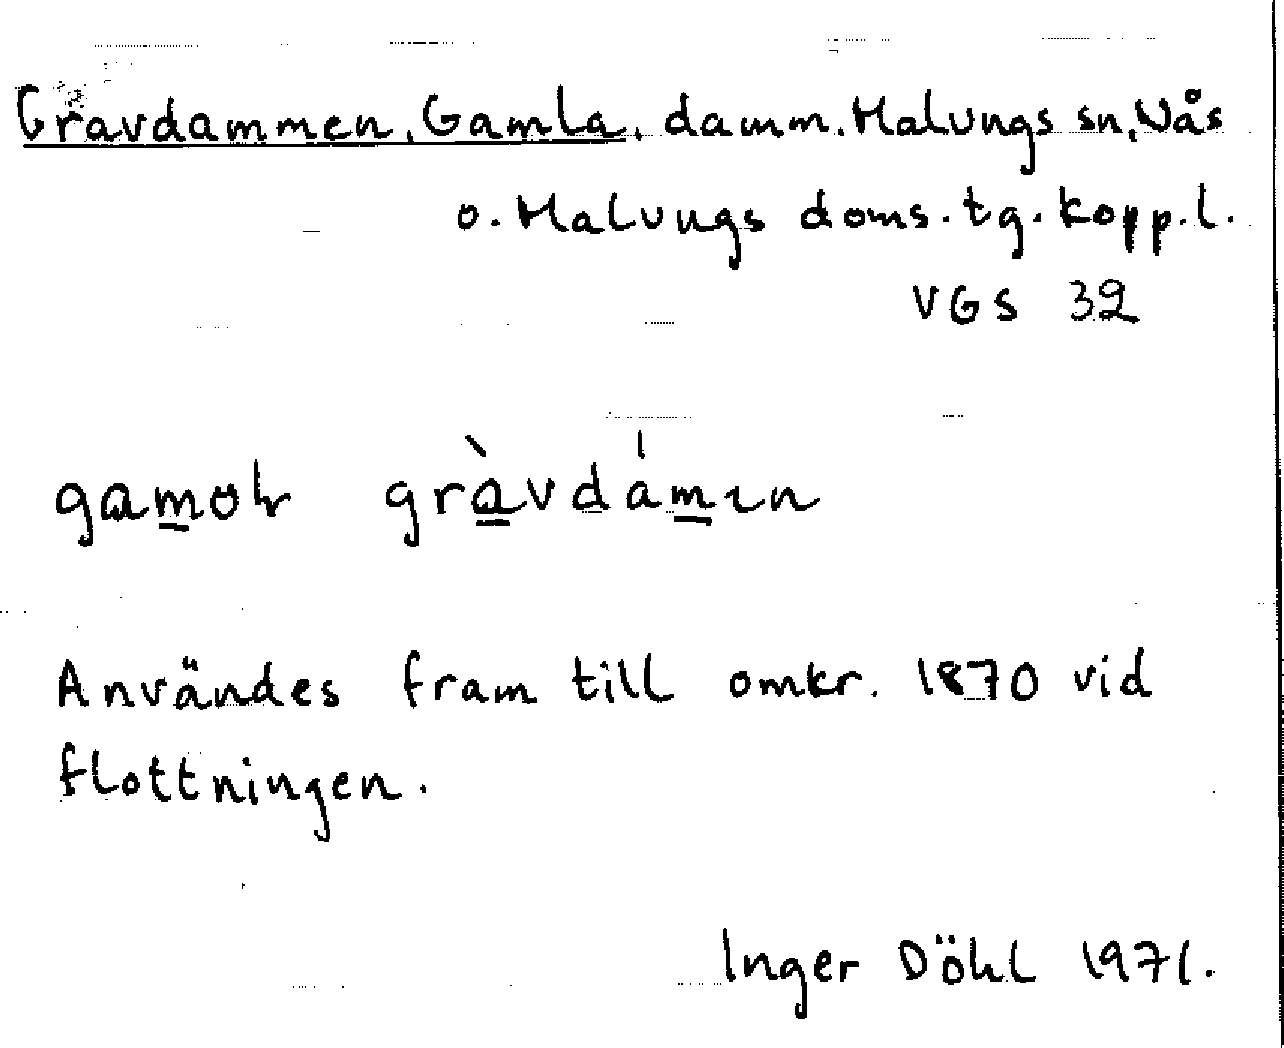 Gravdammen, Gamla, damm. Malungs sn, Nås
o. Malungs doms. tg. kopp. l.
VGS 32
gràvdámɪn
Användes fram till omkr. 1870 vid
flottningen.
Inger Döhl 1971.